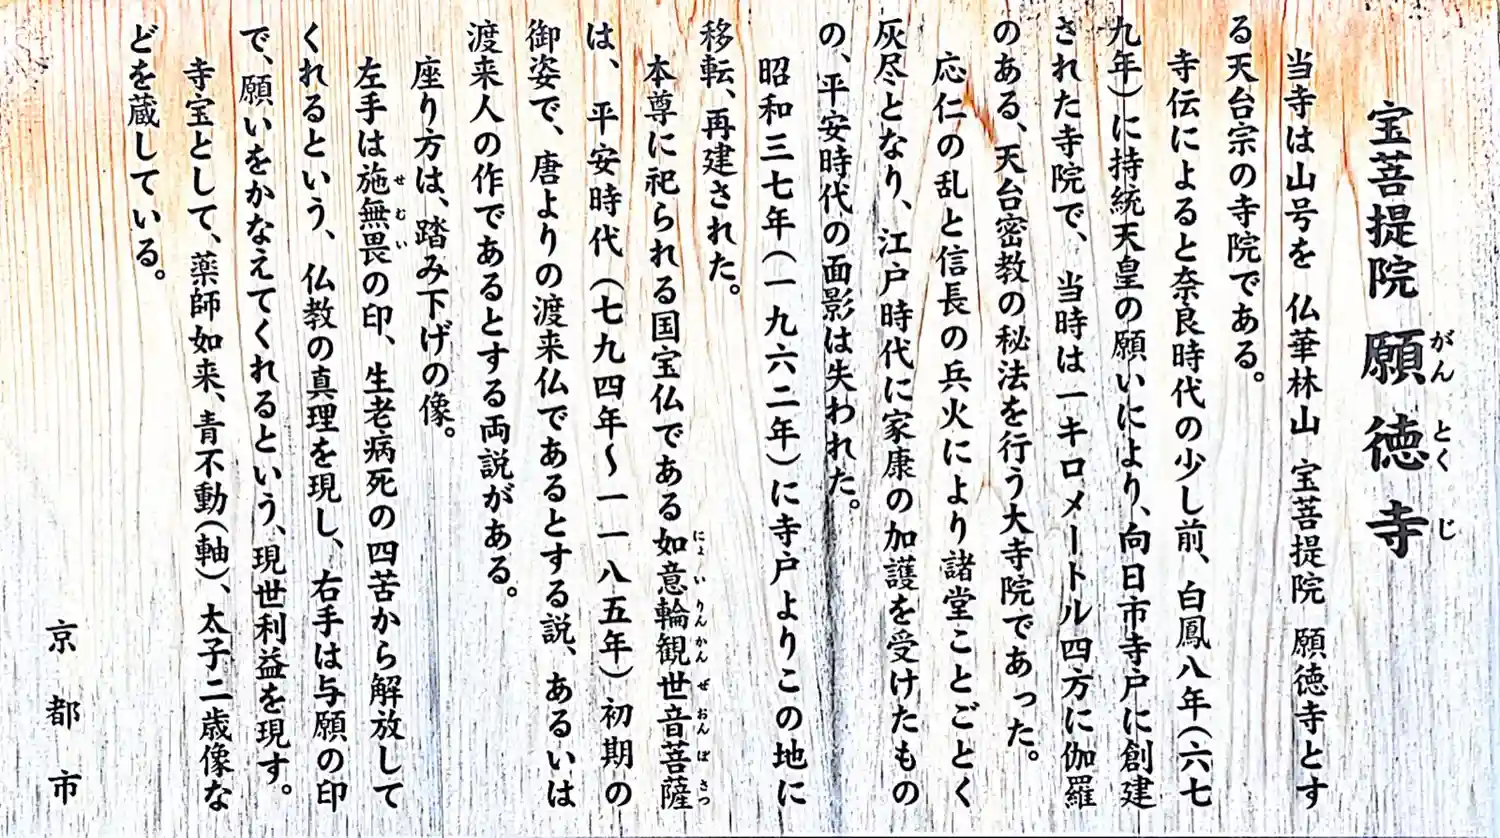 宝菩提院 願徳寺
がんとくじ
当寺は山号を 仏華林山 宝菩提院 願徳寺とす
る天台宗の寺院である。
寺伝によると奈良時代の少し前、白鳳八年(六七
九年)に持統天皇の願いにより、向日市寺戸に創建
された寺院で、当時は一キロメートル四方に伽羅
のある、天台密教の秘法を行う大寺院であった。
応仁の乱と信長の兵火により諸堂ことごとく
灰尽となり、江戸時代に家康の加護を受けたもの
の、平安時代の面影は失われた。
昭和三七年(一九六二年)に寺戸よりこの地に
移転、再建された。
本尊に祀られる国宝仏である如意輪観世音菩薩
にょいりんかんぜおんぼさつ
は、平安時代(七九四年〜一一八五年)初期の
御姿で、唐よりの渡来仏であるとする説、あるいは
渡来人の作であるとする両説がある。
座り方は、踏み下げの像。
左手は施無畏の印、生老病死の四苦から解放して
せむい
くれるという、仏教の真理を現し、右手は与願の印
で、願いをかなえてくれるという、現世利益を現す。
寺宝として、薬師如来、青不動(軸)、太子二歳像な
どを蔵している。
京都市